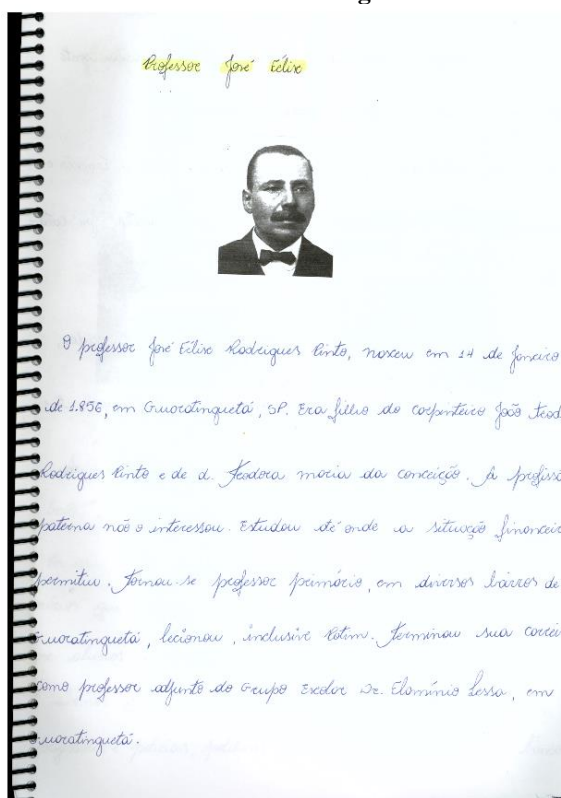 Professor José Félix
O professor José Félix Rodrigues Pinto, nasceu em 14 de Janeiro
de 1.856, em Guaratinguetá, SP. Era filho do carpinteiro João Teod
Rodrigues Pinto e de d. Teodora maria da conceição. A profissã
paterna não o interessou. Estudou até onde a situação financeir
permitiu. Tornou-se professor primário, em diversos bairros de
Guaratinguetá, lecionou, inclusive latim. Terminou sua carrei
como professor adjunto do Grupo Escolar Dr. Flamínio Lessa, em
Guaratinguetá.